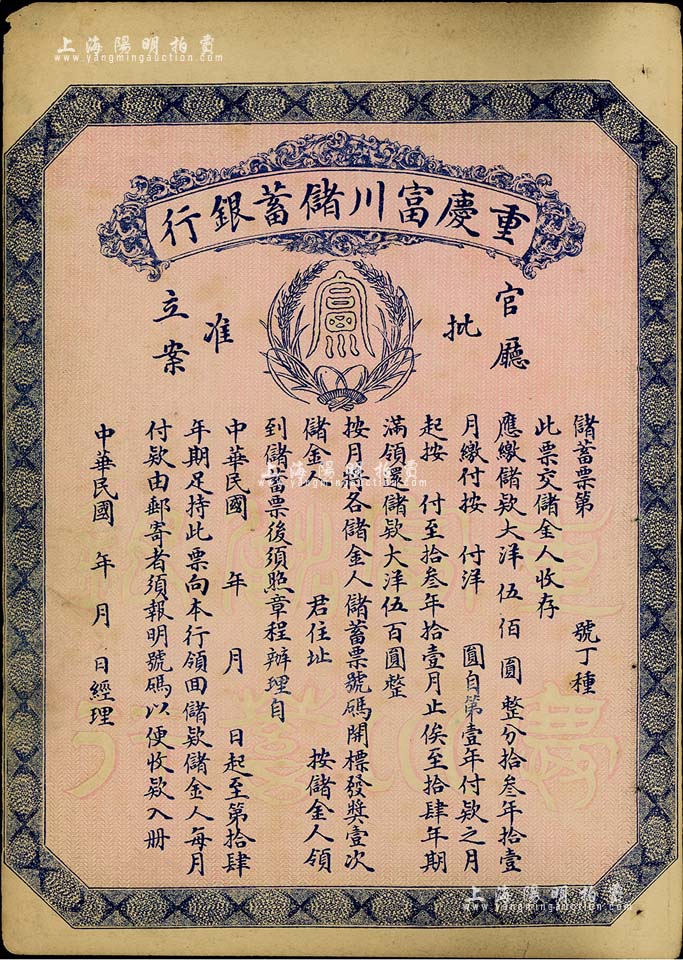 上海陽明拍賣
www.yangmingauction.com
重慶富川儲蓄銀行
官廳
批
准
立案
富川
儲蓄票第　號丁種
此票交儲金人收存
應繳儲欵大洋伍佰圓整分拾叁年拾壹
月繳付按　付洋　圓自第壹年付欵之月
起按　付至拾叁年拾壹月止俟至拾肆年期
滿領還儲欵大洋伍百圓整
按月將各儲金人儲蓄票號碼開標發奬壹次
儲金　君住址　按儲金人領
到儲蓄票後須照章程辦理自
中華民國　年　月　日起至第拾肆
年期足持此票向本行領回儲欵儲金人每月
付欵由郵寄者須報明號碼以便收欵入册
中華民國　年　月　日經理
上海陽明拍賣
www.yangmingauction.com
上海陽明拍賣
www.yangmingauction.com